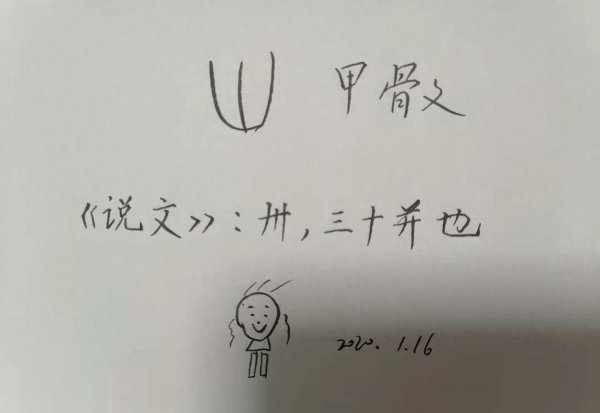 甲骨文
《说文》:卅,三十并也
2020.1.16